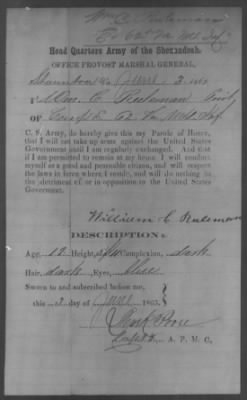 Wm C Ruleman
Co E 62 Va Mtd Inf
Head Quarters Army of the Shenandoah.
OFFICE PROVOST MARSHAL GENERAL,
Staunton Va June 2 186
I Wm. C Ruleman Privt
OF Comp E 62 Va Mtd Inf
C. S. Army, do hereby give this my Parole of Honor,
that I will not take up arms against the United States
Government until I am regularly exchanged. And that
if I am permitted to remain at my home, I will conduct
myself as a good and peaceable citizen, and will respect
the laws in force where I reside, and will do nothing to
the detriment of or in opposition to the United States
Goverment.
William C Ruleman
DESCRIPTION:
Age, Height, Complexion, dark
Hair, dark Eyes, blue
Sworn to and subscribed before me,
this 2 day of June 1865.
A. P. M. G.